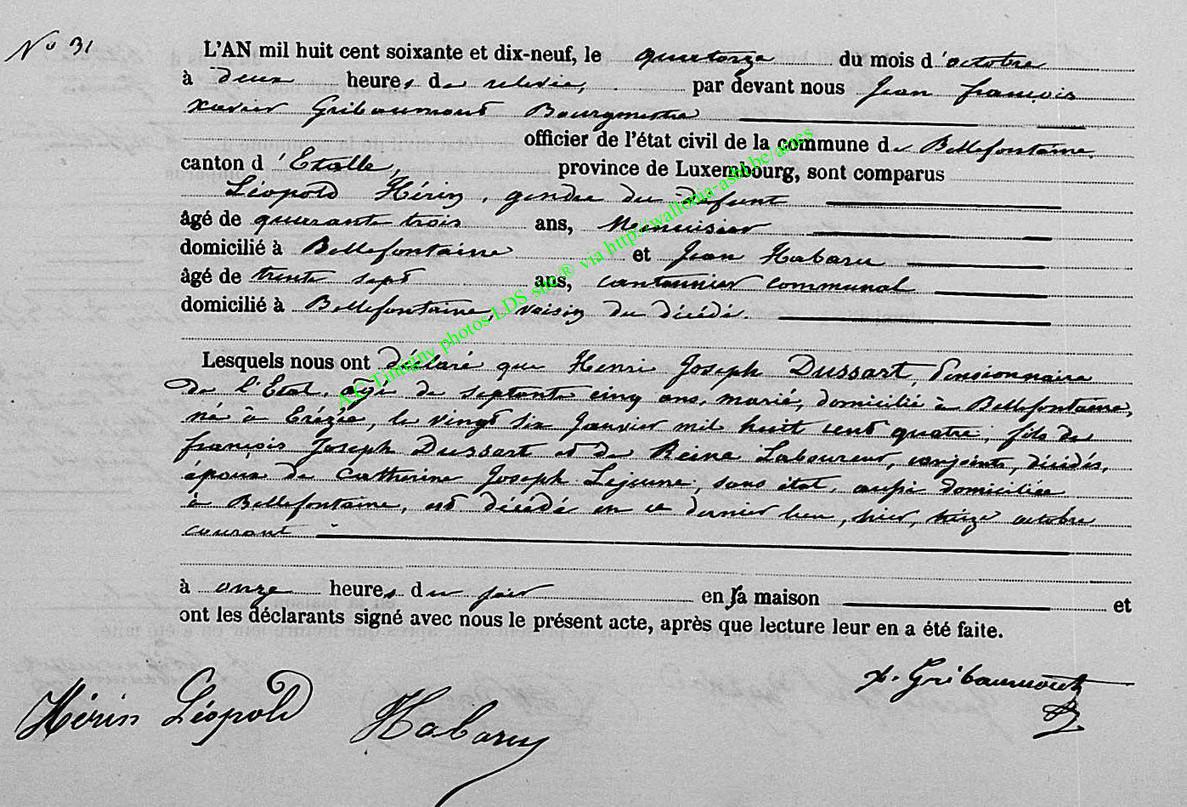 No 31
L'AN mil huit cent soixante et dix-neuf, le quatorze du mois d'octobre
à deux heures de relevée, par devant nous Jean françois
xavier Gribaumont Bourgmestre
officier de l'état civil de la commune de Bellefontaine,
canton d'Etalle, province de Luxembourg, sont comparus
Léopold Hérin, gendre du défunt
âgé de quarante trois ans, Menuisier
domicilié à Bellefontaine et Jean Habaru
âgé de trente sept ans, cantonnier communal
domicilié à Bellefontaine, voisin du décédé.
Lesquels nous ont déclaré que Henri Joseph Dussart, Pensionnaire
de l'Etat, agé de septante cinq ans, marié, domicilié à Bellefontaine,
né à Erézée, le vingt six Janvier mil huit cent quatre, fils de
françois Joseph Dussart et de Reine Laboureur, conjoints, décédés,
époux de Catherine Joseph Lejeune, sans état, aussi domiciliée
à Bellefontaine, est décédé en ce dernier lieu, hier, treize octobre
courant
à onze heures du soir en sa maison et
ont les déclarants signé avec nous le présent acte, après que lecture leur en a été faite.
x. Gribaumont
Hérin Léopold Habaru
AC Tintigny photos LDS site® via http://wallonia-asbl.be/actes